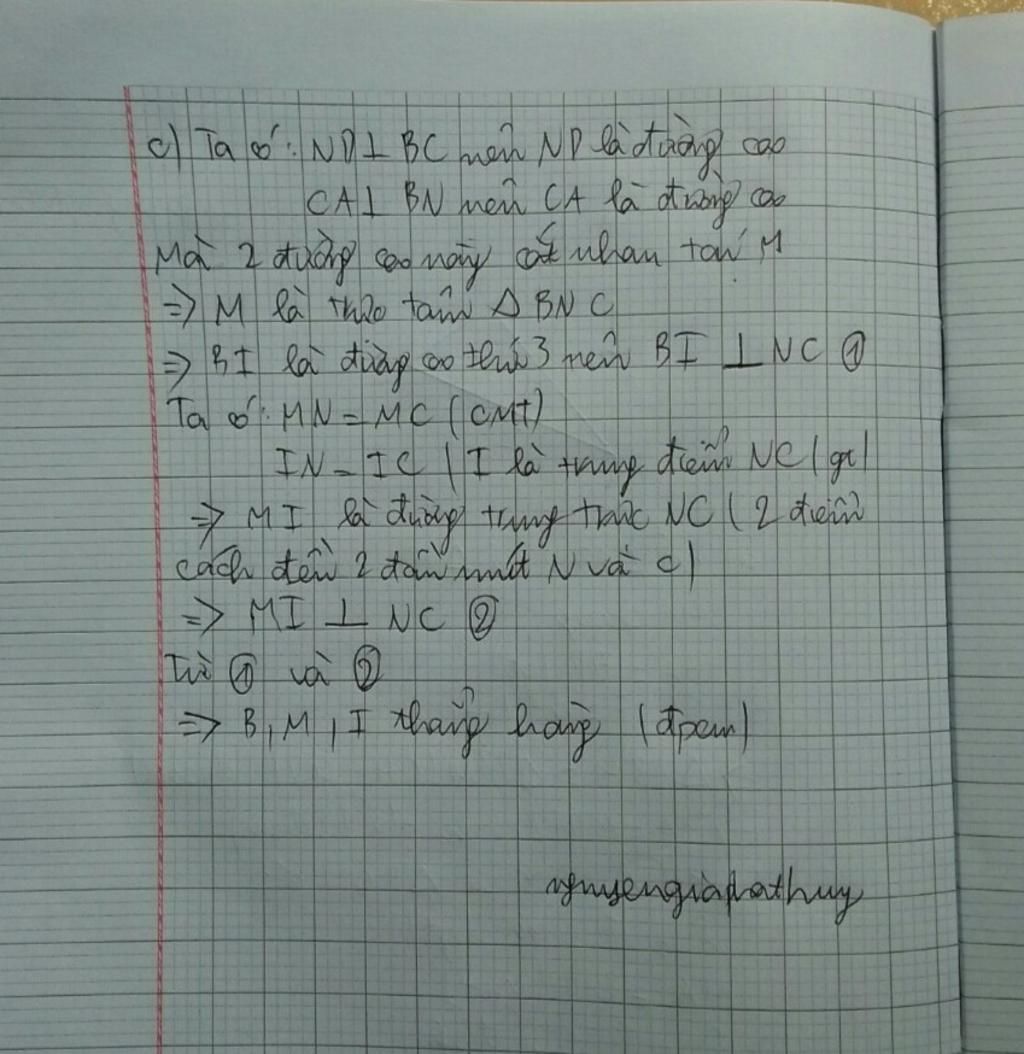 c) Ta có: ND ⊥ BC nên ND là đường cao
CA ⊥ BN nên CA là đường cao
Mà 2 đường cao này cắt nhau tại M
=> M là trực tâm Δ BNC
=> BI là đường cao thứ 3 nên BI ⊥ NC ①
Ta có: MN = MC (CMT)
IN = IC (I là trung điểm NC (gt)
=> MI là đường trung trực NC (2 điểm
cách đều 2 đầu mút N và C)
=> MI ⊥ NC ②
Từ ① và ②
=> B, M, I thẳng hàng (đpcm)